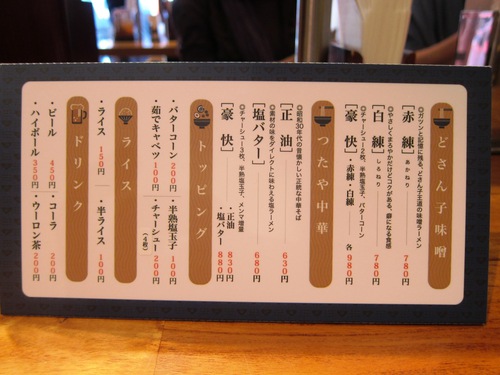 どさん子味噌
◎ガツンと記憶に残る、どさん子王道の味噌ラーメン
［赤練］あかねり 780円
◎やさしくまろやかだけどコクがある、癖になる食感
［白練］しろねり 780円
◎チャーシュー2枚、半熟塩玉子、バターコーン
［豪快］・赤練・白練 各980円
つたや中華
◎昭和30年代の昔懐かしい正統な中華そば
［正油］ 630円
◎素材の味をダイレクトに味わえる塩ラーメン
［塩バター］ 680円
◎チャーシュー3枚、半熟塩玉子、メンマ増量
［豪快］・正油 830円
・塩バター 880円
トッピング
・バターコーン 200円
・半熟塩玉子 100円
・茹でキャベツ 100円
・チャーシュー(4枚) 200円
ライス
・ライス 150円
・半ライス 100円
ドリンク
・ビール 450円
・コーラ 200円
・ハイボール 350円
・ウーロン茶 200円